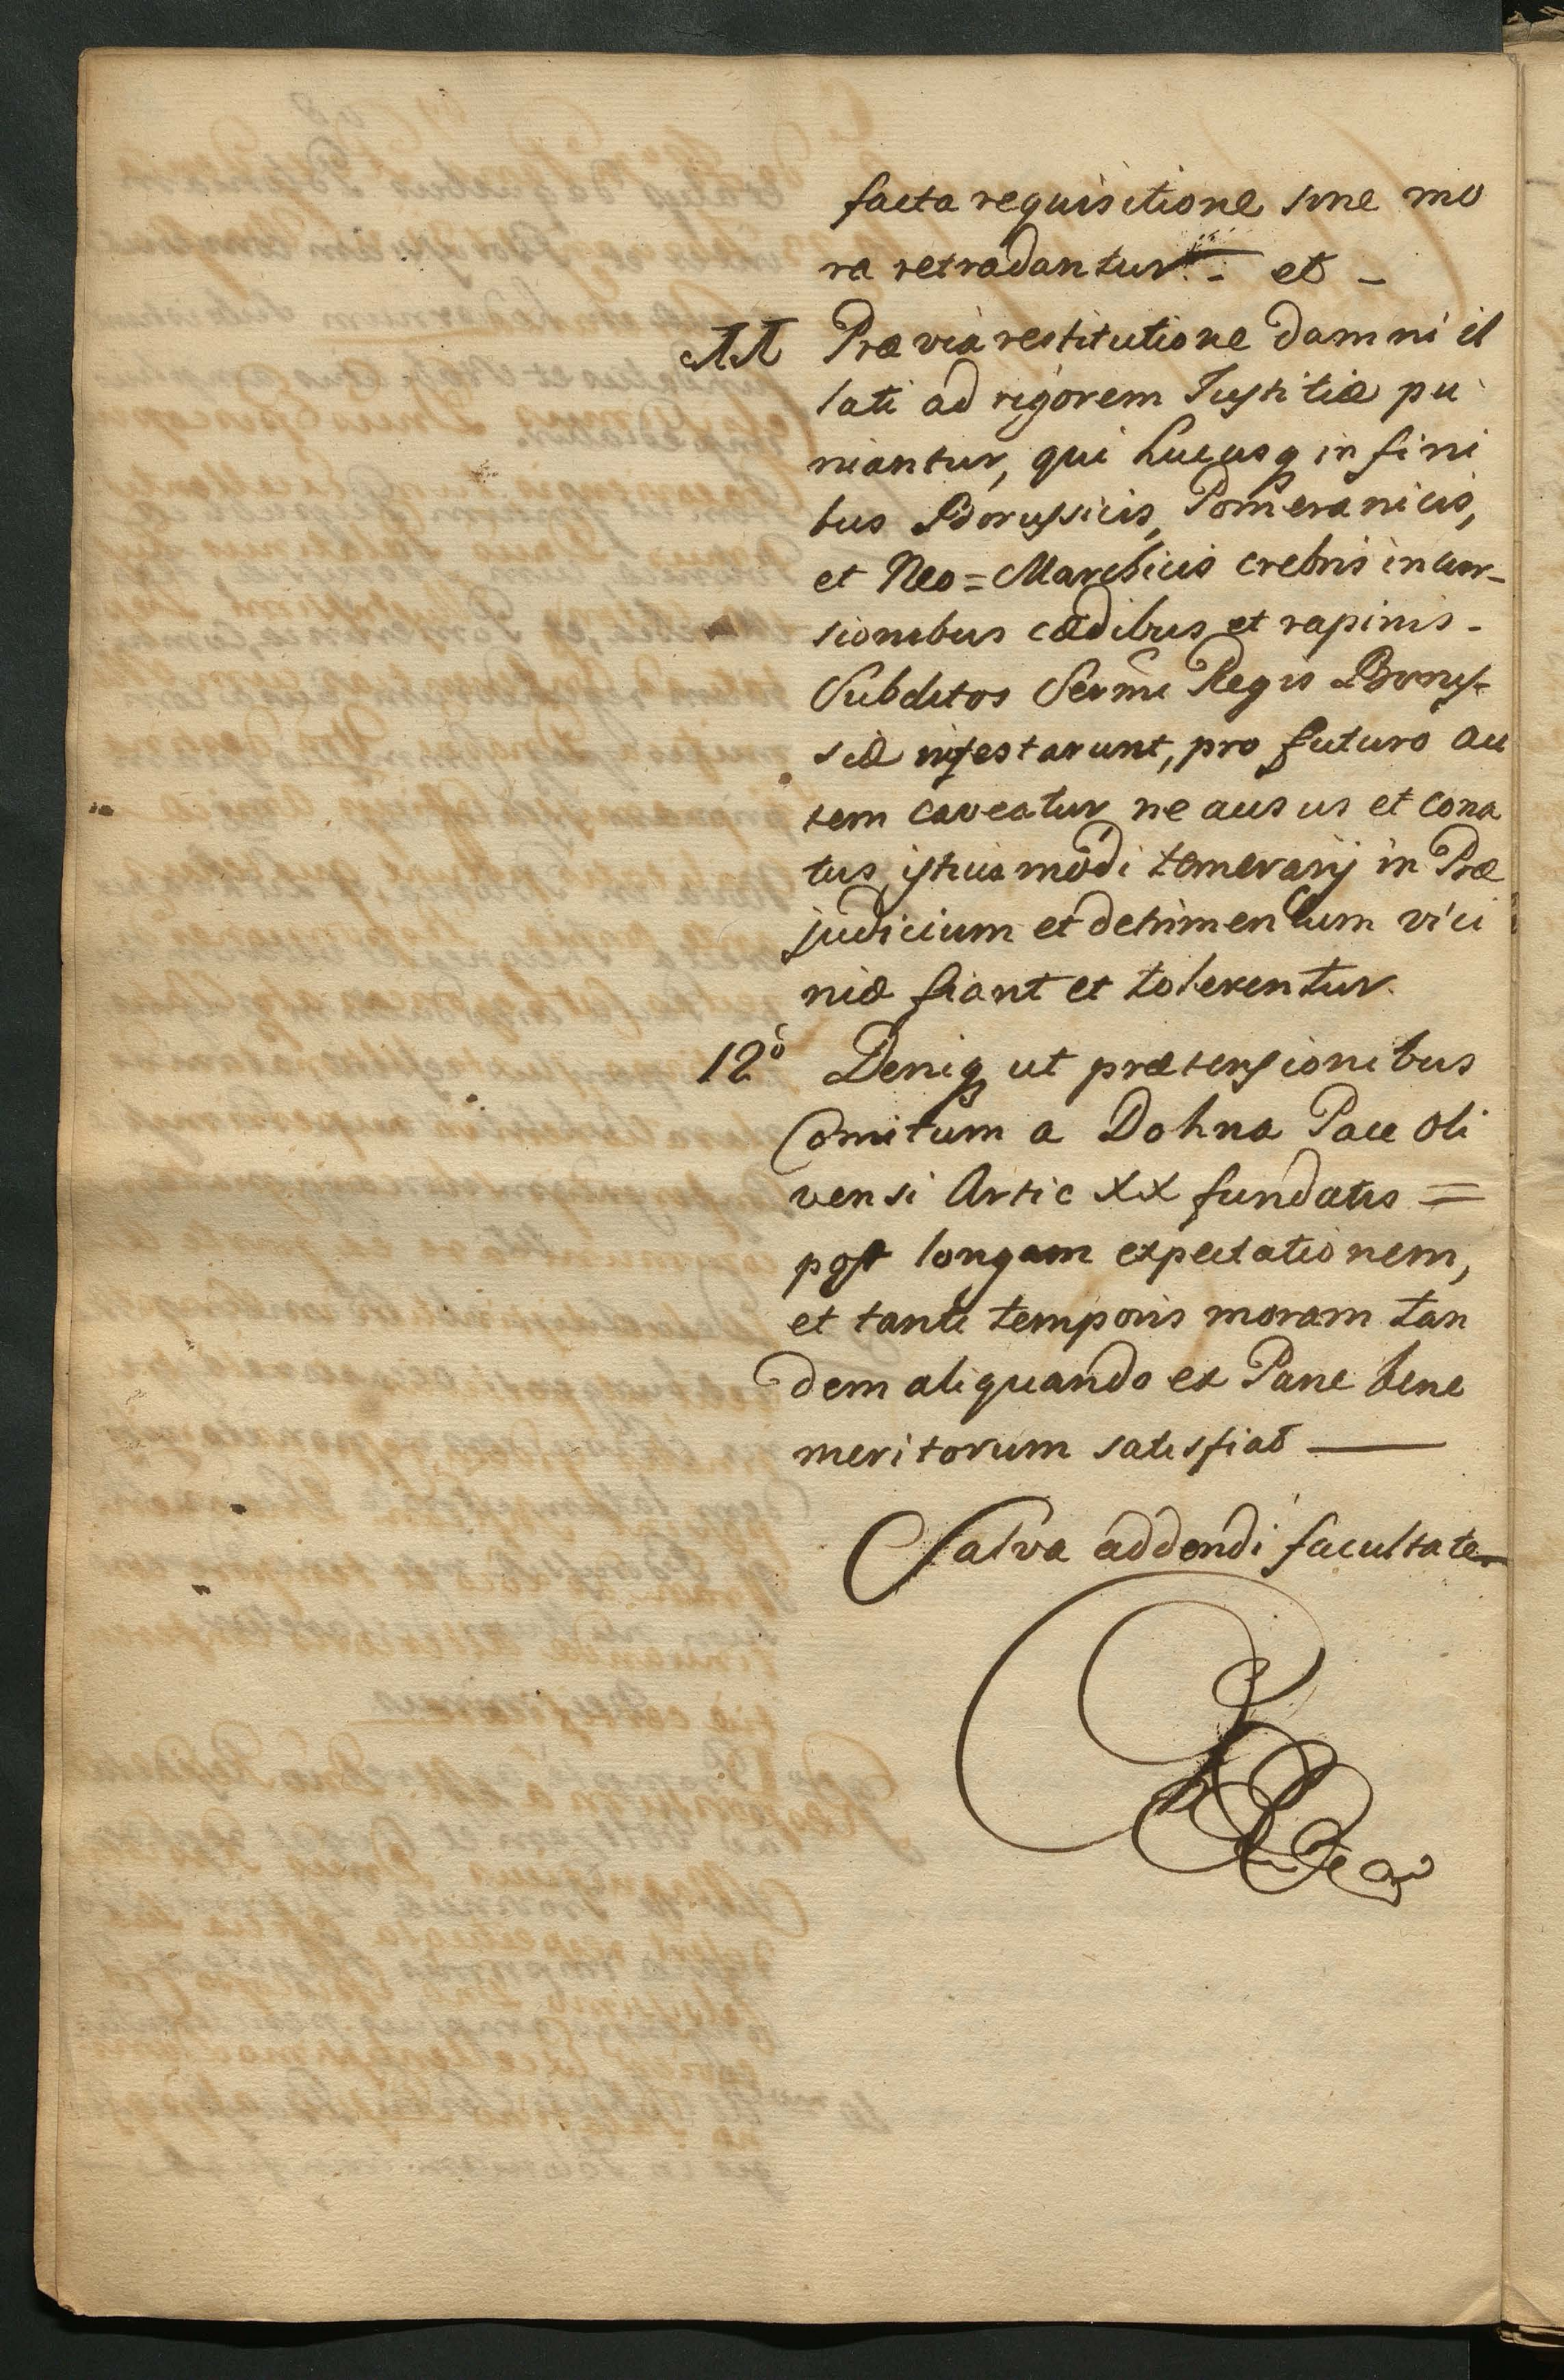 facta requisitione sine mo
ra retradantur. - et -
11 Præviâ restitutione damni il
lati ad rigorem Justitiæ pu
niantur, qui hucusq in fini
bus Borussicis, Pomeranicis,
et Neo=Marchicis crebris incur-
sionibus cædibus et rapinis -
Subditos Sermi Regis Borus-
siæ infestarunt, pro futuro au
tem caveatur ne ausus et cona
tus istius modi temerarij in Præ
judicium et detrimentum vici
niæ fiant et tolerentur.
12ò Deniq ut prætensionibus
Comitum a Dohna Pace Oli
vensi Artic XX fundatis =
post longam expectationem,
et tanti temporis moram tan
dem aliquando ex Parte bene
meritorum satisfiat —
Salva addendi facultate